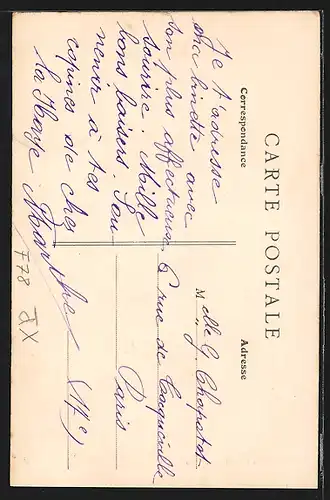 CARTE POSTALE
Correspondance
Adresse
Je t'adresse
ma binette avec
son plus affectueux
sourire. Mille
bons baisers. Sou
venir à tes
copines de chez
Marthe
M elle G. Chopotot
6 rue de Tocqueville
Paris
(17e)
F78